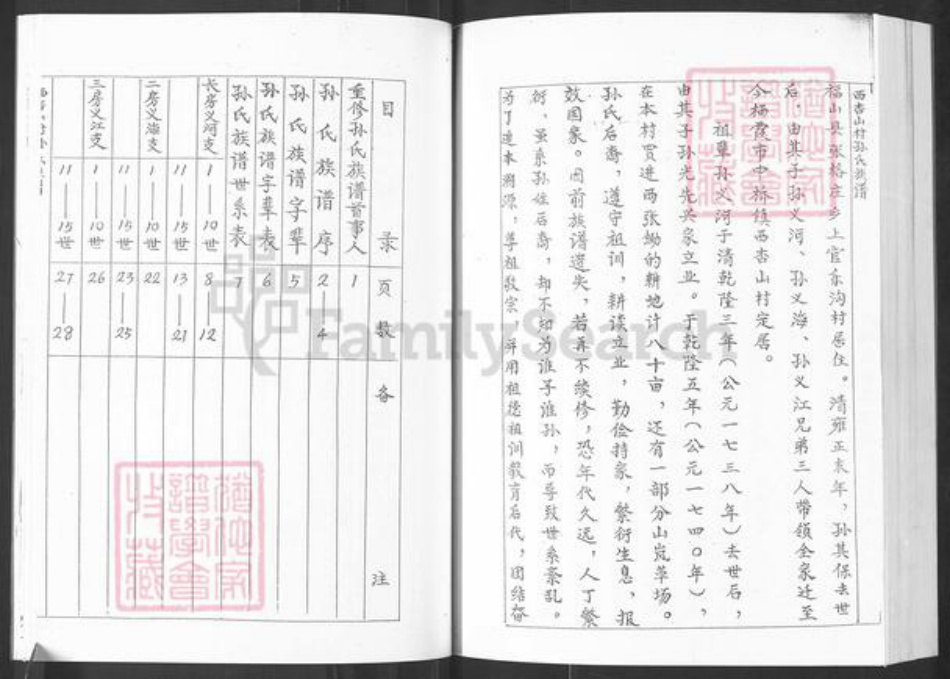 西杏山村孙氏族谱
福山县张格庄乡上官东沟村居住。清雍正末年，孙其保去世
后，由其子孙义河、孙义海、孙义江兄弟三人带领全家迁至
今栖霞市中桥镇西杏山村定居。
祖辈孙义河于清乾隆三年（公元一七三八年）去世后，
由其子孙光先兴家立业。于乾隆五年（公元一七四〇年），
在本村买进西张㘭的耕地计八十亩，还有一部分山岚草场。
孙氏后裔，遵守祖训，耕读立业，勤俭持家，繁衍生息，报
效国家。因前族谱遗失，若再不续修，恐年代久远，人丁繁
衍，虽系孙姓后裔，却不知为谁子谁孙，而导致世系紊乱。
为了追本溯源，尊祖敬宗 并用祖德祖训教育后代，团结奋
目录 页数 备注
重修孙氏族谱首事人 1
孙氏族谱序 2——4
孙氏族谱字辈 5
孙氏族谱字辈表 6
孙氏族谱世系表 7
长房义河支 1——10世 8——12
11——15世 13——21
二房义海支 1——10世 22
11——15世 23——25
三房义江支 1——10世 26
11——15世 27——28
FamilySearch